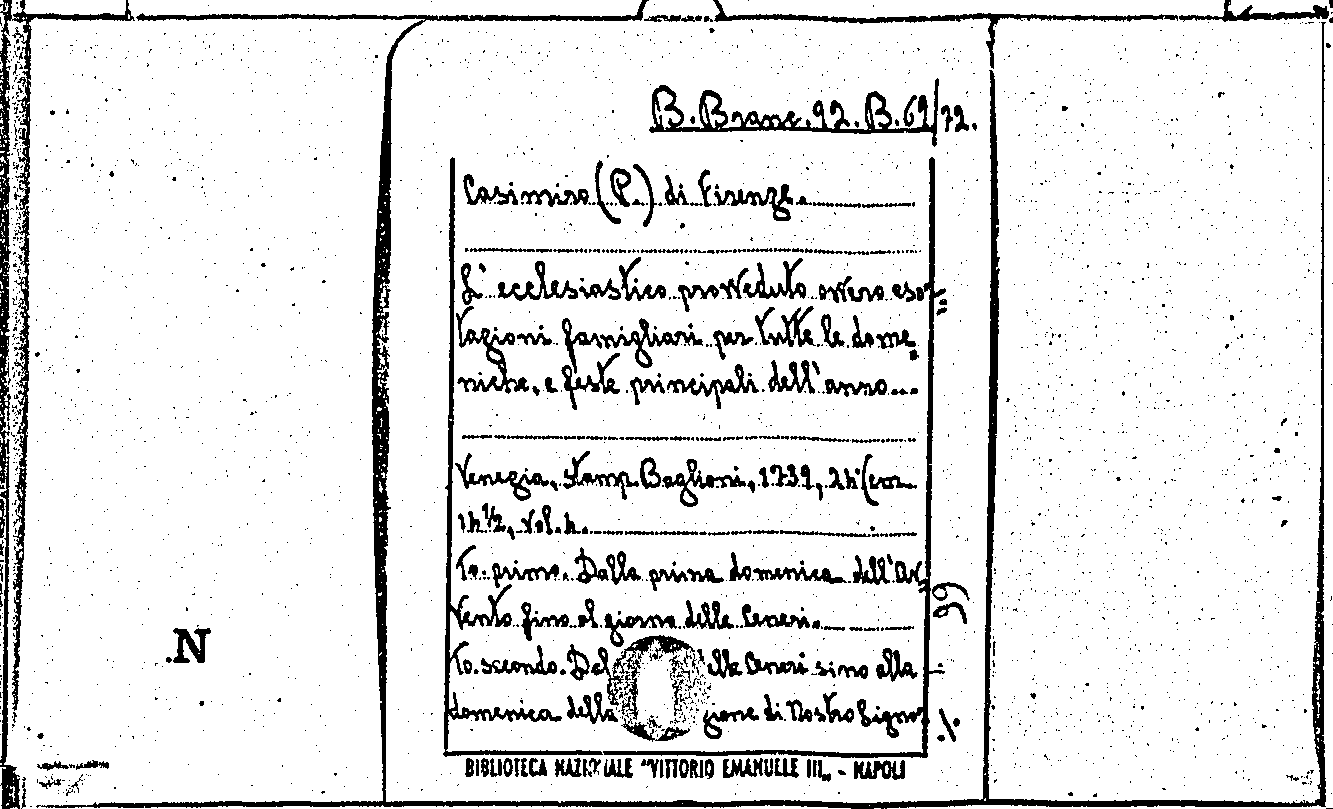 B. Branc. 92. B. 69/72.
Casimiro (P.) di Firenze.
L'ecclesiastico provveduto ovvero esor=
tazioni famigliari per tutte le dome=
niche, e feste principali dell'anno...
Venezia, stamp. Baglioni, 1739, 24° (cm.
14½, vol. 4.
To. primo. Dalla prima domenica dell'Av=
vento fino al giorno delle Ceneri.
To. secondo. Dal delle Ceneri sino alla
domenica della di Nostro Signo=
BIBLIOTECA NAZIONALE "VITTORIO EMANUELE III" - NAPOLI
N